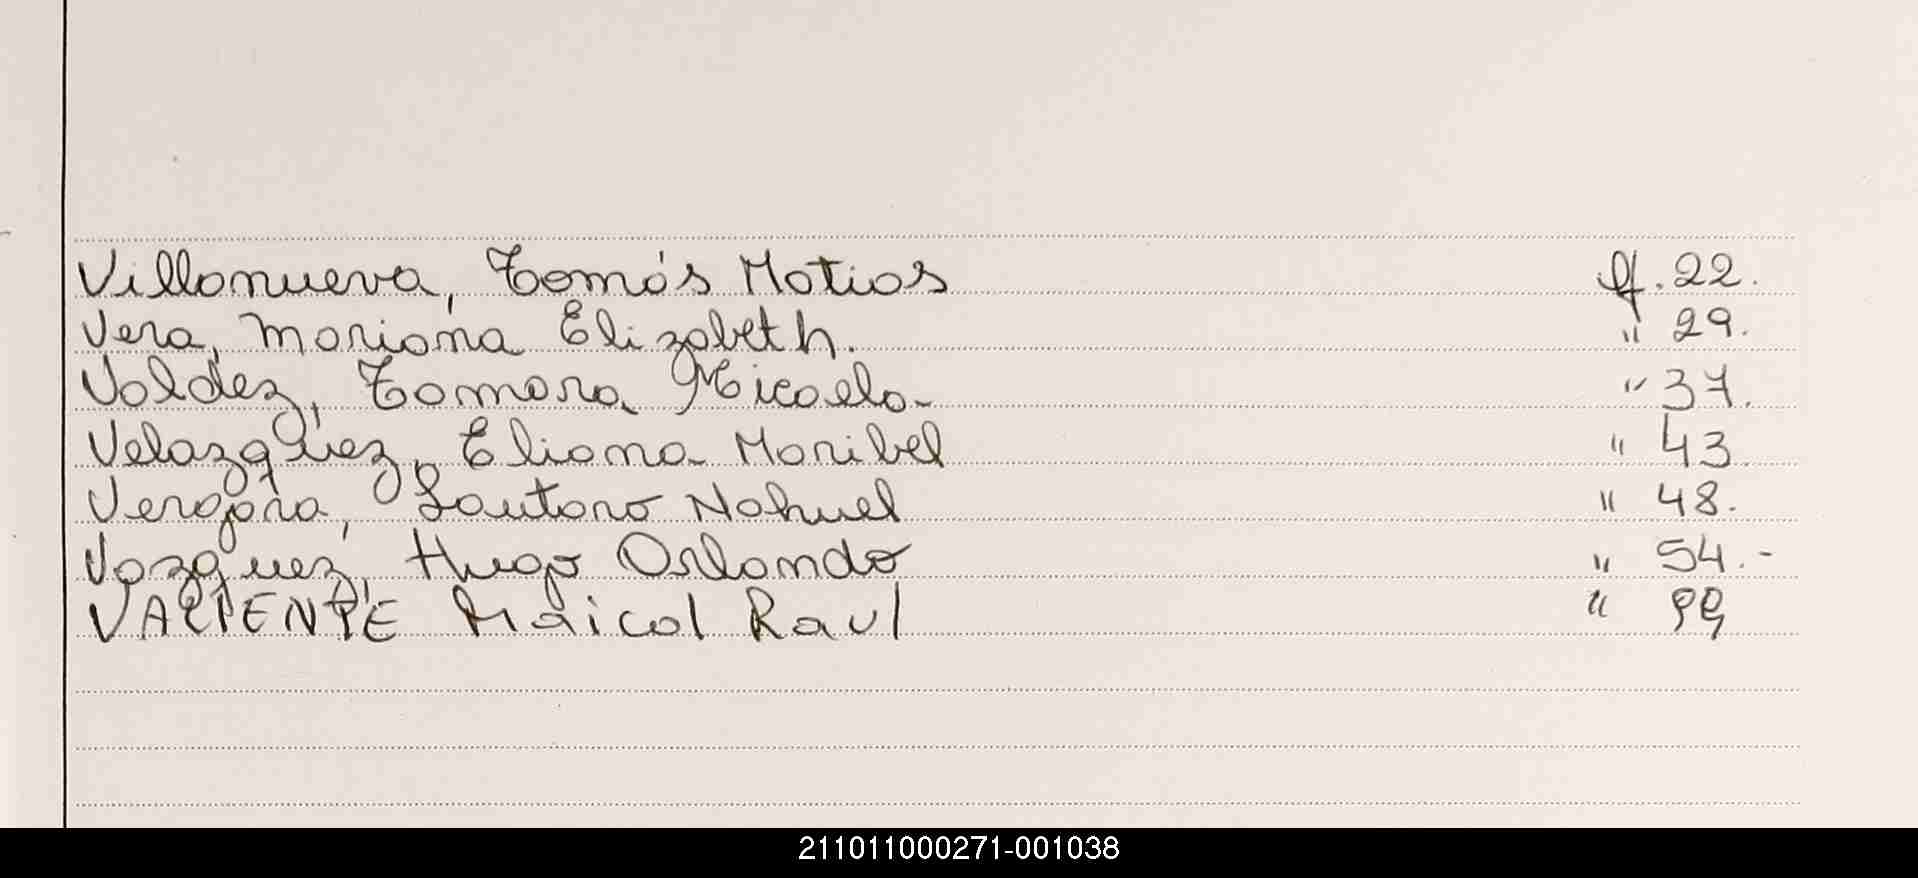 Villanueva, Tomás Matias ff. 22.
Vera, Mariana Elizabeth. " 29.
Valdez, Tamara Micaela- " 37.
Velazquez, Eliana Maribel " 43.
Vergara, Lautaro Nahuel " 48.
Vazquez, Hugo Orlando " 54.-
VALIENTE Maicol Raul " 99
211011000271-001038